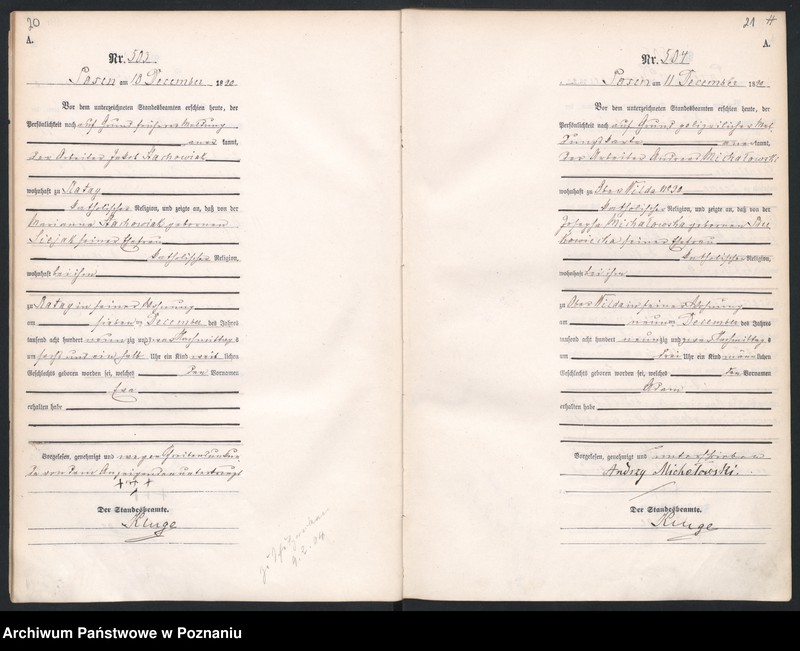 20
A.
Nr. 503.
Posen am 10 December 1890
Vor dem unterzeichneten Standesbeamten erschien heute, der
Persönlichkeit nach auf Grund früherer Meldung
kannt,
der Arbeiter Jakob Stachowiak
wohnhaft zu Rataj
katholischer Religion, und zeigte an, daß von der
Marianna Stachowiak geborenen
seiner Ehefrau
katholischer Religion,
wohnhaft bei ihm
zu Rataj in seiner Wohnung
am sieben ten December des Jahres
tausend acht hundert neunzig und zwar Nachmittag s
um sechs und ein halb Uhr ein Kind weib lichen
Geschlechts geboren worden sei, welches den Vornamen
Eva
erhalten habe
Vorgelesen, genehmigt und wegen
von dem Anzeigenden unterkreuzt
+++
Der Standesbeamte.
Kluge
21
A.
Nr. 504.
Posen am 11 December 1890
Vor dem unterzeichneten Standesbeamten erschien heute, der
Persönlichkeit nach auf Grund polizeilicher Mel
kannt,
der Arbeiter Andreas Michałowski
wohnhaft zu Ober Wilda No 30
katholischer Religion, und zeigte an, daß von der
Josepha Michałowska geborenen
seiner Ehefrau
katholischer Religion,
wohnhaft bei ihm
zu Ober Wilda in seiner Wohnung
am neun ten December des Jahres
tausend acht hundert neunzig und zwar Nachmittag s
um drei Uhr ein Kind männ lichen
Geschlechts geboren worden sei, welches den Vornamen
Adam
erhalten habe
Vorgelesen, genehmigt und unterschrieben
Andrzy Michołowski.
Der Standesbeamte.
Kluge
Archiwum Państwowe w Poznaniu